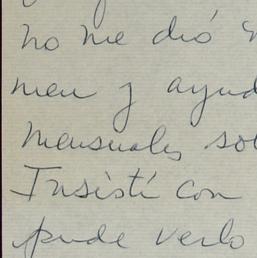 no me dió
men y ayud
mensuales so
Insistí con
pude verlo